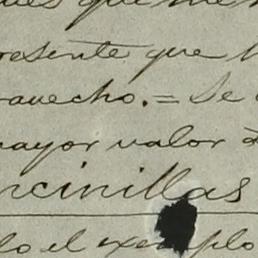 que me
resente que
ho. = Se
mayor valor
ncinillas
lo el exemplo